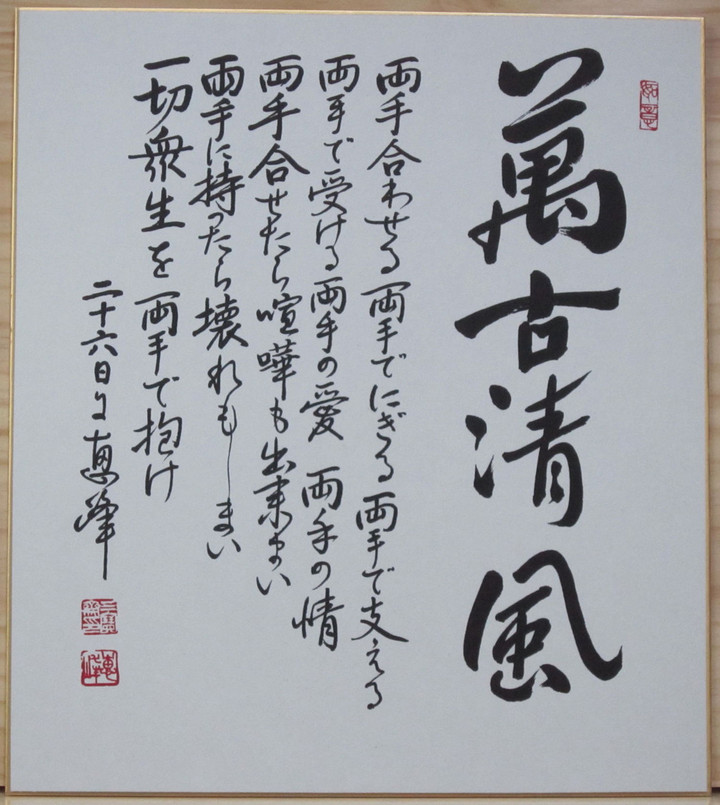 萬古清風
両手合わせる 両手でにぎる 両手で支える
両手で受ける 両手の愛 両手の情
両手合せたら喧嘩も出来まい
両手に持ったら壊れもしまい
一切衆生を 両手で抱け
二十六日 恵峰